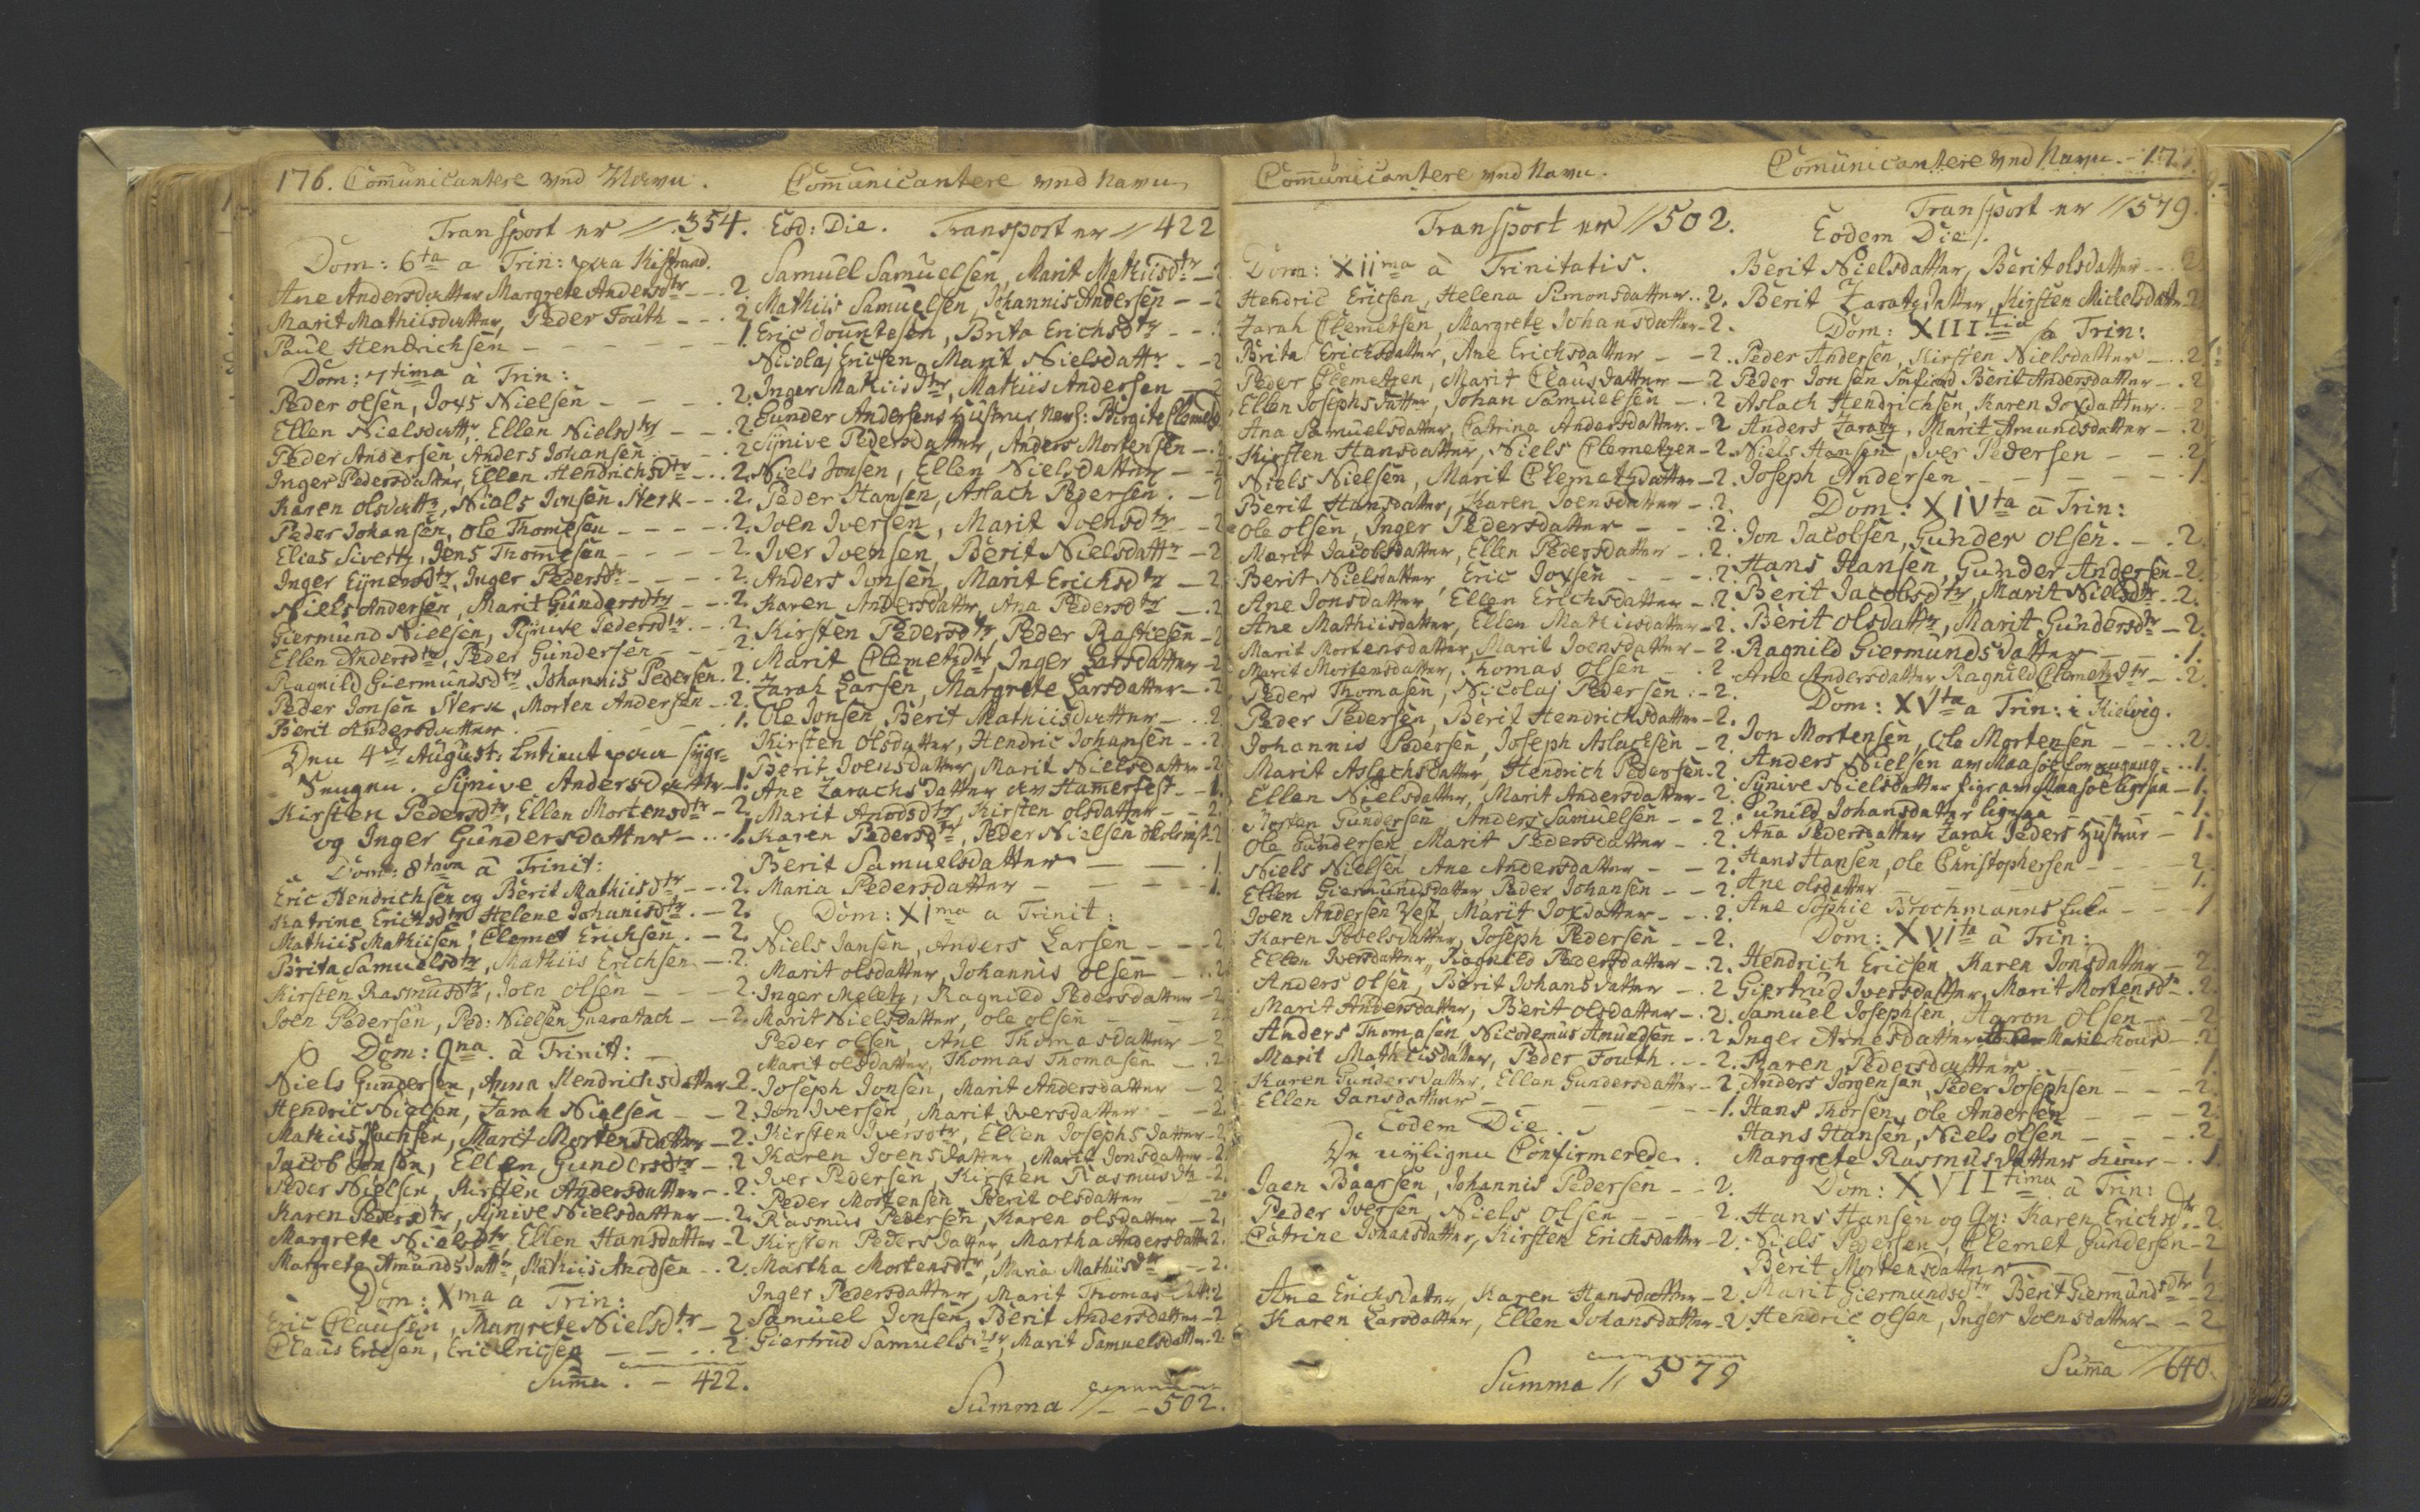 176. Communicantere ved Navn.
Transport er // 354.
Dom: 6ta a Trin: paa Kistrand.
Ane Andersdatter Margrete Andersdtr - - 2
Marit Mathiisdatter, Peder Fouth - - . 2
Paul Hendrichsen - - - - - - 1.
Dom: 7tima à Trin:
Peder olsen, Joxs Nielsen - - - . 2.
Ellen Nielsdattr, Ellen Nielsdtr - - . 2
Peder Andersen, Anders Johansen - . 2
Inger Pedersdatter, Ellen Hendrichsdtr - . . 2.
Karen olsdattr, Niels Jonsen Sterk - - . 2.
Peder Johansen, Ole Thomesen - - - - . 2.
Elias Sivertz, Jens Thomesen - - - - 2.
Inger Eijnersdtr, Inger Pedersdtr - - - - 2.
Niels Andersen, Marit Gundersdtr - - . 2.
Giermund Nielsen, Sijnive Pedersdtr. - . 2
Ellen Andersdtr, Peder Gundersen - - - 2.
Ragnild Giermundsdtr, Johannis Pedersen. 2.
Peder Jonsen Sterk, Morten Andersen - . 2.
Berit Andersdatter - - - 1.
Den 4de August: betient paa Sijge-
Sengen. Sijnive Andersdatter - 1.
Kirsten Pedersdtr, Ellen Mortensdtr - 2
og Inger Gundersdatter - . . 1.
Dom: 8tava à Trinit:
Eric Hendrichsen og Berit Mathiisdtr - - . 2.
Katrine Erichsdtr Helene Johanisdtr. - 2.
Mathiis Mathiisen, Clemet Erichsen. - 2.
Brita Samuelsdtr, Mathiis Erichsen - . 2.
Kirsten Rasmusdtr, Joen olsen - - 2.
Joen Pedersen, Ped: Nielsen - - 2
Dom: 9na. à Trinit: -
Niels Gundersen, Anna Hendrichsdatter - 2.
Hendric Nielsen, Zarah Nielsen - - 2
Mathiis Jachsen, Marit Mortensdatter - 2.
Jacob Jonsen, Ellen Gundersdtr - . 2
Peder Nielsen, Kirsten Andersdatter - . 2.
Karen Pedersdtr, Sijnive Nielsdatter - . 2.
Margrete Nielsdtr, Ellen Hansdatter - 2
Margrete Amundsdattr, Mathiis Anodsen - . 2.
Dom: Xma a Trin:
Eric Clausen, Margrete Nielsdtr - 2
Claus Ericsen, Eric Ericsen - - - . . 2.
Summa. - 422.
Communicantere ved Navn
Eod: Die. Transport er // 422
Samuel Samuelsen, Marit Mathiisdtr - 2
Mathiis Samuelsen, Johannis Andersen - - 2
Eric Jountesen, Brita Erichsdtr - - 2
Nicolaj Ericsen, Marit Nielsdattr. - 2
Inger Mathiisdtr, Mathiis Andersen - 2
Gunder Andersens Hustrue Navl: Birgite Clemetsd
Sijnive Pedersdatter, Anders Mortensen - . 2
Niels Jonsen, Ellen Nielsdatter - - 2
Peder Hansen, Aslach Pedersen. - 2
Joen Iversen, Marit Joensdtr - - 2
Iver Ivensen, Berit Nielsdattr - 2
Anders Jonsen, Marit Erichsdtr - 2.
Karen Andersdattr, Ana Pedersdtr - . 2
Kirsten Pedersdtr, Peder Rasticsen - 2
Marit Clemetzdtr, Inger Larsdatter - 2
Zarah Larsen, Margrete Larsdatter - . 2
Ole Jonsen, Berit Mathiisdatter - . . 2
Kirsten Olsdatter, Hendric Johansen - . 2
Berit Joensdatter, Marit Nielsdatter - 2
Ane Zarachsdatter av Hamerfest - - 1.
Marit Anodsdtr, Kirsten olsdatter - - 2.
Karen Pedersdtr, Peder Nielsen Holmgr - 2
Berit Samuelsdatter - - - . 1
Maria Pedersdatter - - - - - 1.
Dom: Xima a Trinit:
Niels Jansen, Anders Larsen - - - 2
Marit olsdatter, Johannis olsen - . . 2
Inger Meletz, Ragnild Pedersdatter - 2
Marit Nielsdatter, ole olsen - - 2
Peder olsen, Ane Thomasdatter - 2
Marit olsdatter, Thomas Thomasen - . 2
Joseph Jonsen, Marit Andersdatter - 2
Jon Iversen, Marit Iversdatter - - 2.
Kirsten Iversdtr, Ellen Josephsdatter - 2
Karen Joensdatter, Marit Jonsdatter - 2
Iver Pedersen, Kirsten Rasmusdtr - 2.
Peder Mortensen, Berit olsdatter - 2.
Rasmus Pedersen, Karen olsdatter - 2.
Kirsten Pedersdatter, Martha Andersdatter 2.
Martha Mortensdtr, Maria Mathiisdtr - - 2.
Inger Pedersdatter, Marit Thomasdatt: 2
Samuel Jonsen, Berit Andersdatter - 2
Giertrud Samuelsdtr, Marit Samuelsdatter - 2
Summa // - 502.
Communicantere ved Navn.
Transport er // 502.
Dom: XIIma à Trinitatis.
Hendric Ericsen, Helena Simonsdatter . . 2.
Zarah Clemetsen, Margrete Johansdatter - 2.
Brita Erichsdatter, Ane Erichsdatter - - 2.
Peder Clemetzen, Marit Clausdatter - 2
Ellen Josephsdatter, Johan Samuelsen - . 2
Ana Samuelsdatter, Catrina Andersdatter - 2
Kirsten Hansdatter, Niels Clemetzen - 2.
Niels Nielsen, Marit Clemetzdatter - 2.
Berit Hansdatter, Karen Joensdatter - . 2.
Ole olsen, Inger Pedersdatter - - . 2.
Marit Jacobsdatter, Ellen Pedersdatter - . 2.
Berit Nielsdatter, Eric Joxsen - - - . 2.
Ane Jonsdatter, Ellen Erichsdatter - . 2.
Ane Mathiisdatter, Ellen Mathiisdatter - 2.
Marit Mortensdatter, Marit Joensdatter - 2.
Marit Mortensdatter, Thomas olsen - . 2
Peder Thomasen, Nicolaj Pedersen - 2.
Peder Pedersen, Berit Hendrichsdatter - 2.
Johannis Pedersen, Joseph Aslachsen - 2.
Marit Aslachsdatter, Hendrich Pedersen. 2
Ellen Nielsdatter, Marit Andersdatter - 2.
Morten Gundersen, Anders Samuelsen - - 2.
Ole Gundersen, Marit Pedersdatter - . 2.
Niels Nielsen, Ane Andersdatter - - 2.
Ellen Giermundsdatter, Peder Johansen - - 2.
Joen Andersen Vest, Marit Joxdatter - - . 2.
Karen Povelsdatter, Joseph Pedersen - - 2.
Ellen Iversdatter, Ragnild Pedersdatter - . 2.
Anders Olsen, Berit Johansdatter - . 2
Marit Andersdatter, Berit olsdatter - . 2.
Anders Thomasen, Nicodemus Amundsen - . 2
Marit Mathiisdatter, Peder Fouth. - - 2.
Karen Gundersdatter, Ellen Gundersdatter - 2
Ellen Jansdatter - - - - - - 1.
Eodem Die.
De nijligen Confirmerede.
Joen Baarsen, Johannis Pedersen - - 2.
Peder Iversen, Niels Olsen - - - 2.
Catrine Johansdatter, Kirsten Erichsdatter - 2.
Ane Erichsdatter, Karen Hansdatter - 2.
Karen Larsdatter, Ellen Johansdatter - 2.
Summa // 579
Communicantere ved Navn. - 177.
Transport er // 579.
Eodem Die.
Berit Nielsdatter, Berit olsdatter - - 2
Berit Zaratzdatter, Kirsten Michelsdatter - 2
Dom: XIIItia a Trin:
Peder Andersen, Kirsten Nielsdatter - . . 2
Peder Jonsen Berit Andersdatter - . 2
Aslach Hendrichsen, Karen Joxdatter. - 2
Anders Zaratz, Marit Amundsdatter - . 2
Niels Hansen, Iver Pedersen - - . 2
Joseph Andersen - - - - - - 1.
Dom: XIVta a Trin:
Jon Jacobsen, Gunder olsen. - . 2.
Hans Hansen, Gunder Andersen - 2.
Berit Jacobsdtr, Marit Nielsdtr - 2.
Berit olsdattr, Marit Gundersdtr - 2.
Ragnild Giermundsdatter - - . 1.
Ane Andersdatter Ragnild Clemetzdtr - . 2.
Dom: XVta a Trin: i Kielvig.
Jon Mortensen, Ole Mortensen - - . . 2.
Anders Nielsen av Maasøe - . . 1.
Sijnive Nielsdatter ligesaa - 1.
Gunild Johansdatter ligesaa - - - 1.
Ana Pedersdatter Zarah Peders Hustrue - 1.
Hans Hansen, ole Christophersen - - 2
Ane olsdatter - - - - - 1.
Ane Sophie Brochmanns Enke - - - 1
Dom: XVIta à Trin:
Hendrich Ericsen, Karen Jonsdatter - 2.
Giertrud Iversdatter, Marit Mortensdtr. 2.
Samuel Josephsen, Haron Olsen - - 2
Inger Arnesdatter Marit - . 2
Karen Pedersdatter - - - 1.
Anders Jörgensen, Peder Josephsen - - - 2.
Hans Thorsen, ole Andersen - - - 2.
Hans Hansen, Niels olsen - - - . 2.
Margrete Rasmusdatter - . 1.
Dom: XVIItima à Trin:
Hans Hansen og Qv: Karen Erichsdtr - 2.
Niels Pedersen, Clemet Gundersen - 2
Berit Mortensdatter - - - 1
Marit Giermundsdtr, Berit Giermundsdtr - 2
Hendric olsen, Inger Joensdatter - - 2
Summa // 640.